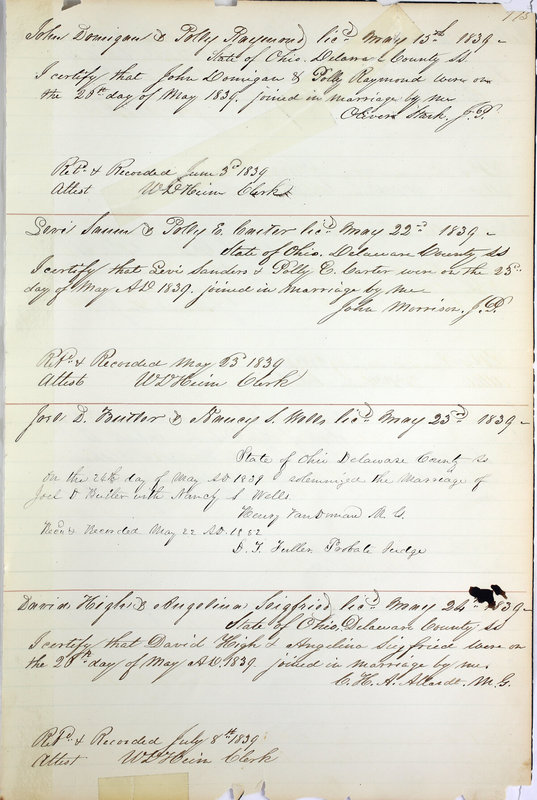 115
John Donnigan & Polly Raymond licd May 15th 1839 -
State of Ohio, Delaware County ss
I certify that John Donnigan & Polly Raymond were on
the 20th day of May 1839. joined in marriage by me
Oliver Stark, J.P.
Retd & Recorded June 3d 1839
Attest W D Heim Clerk
Levi & Polly E. Carter licd May 22d 1839 -
State of Ohio, Delaware County ss
I certify that Levi Sanders & Polly E. Carter were on the 23d
day of May AD 1839. joined in marriage by me
John Morrison, J.P.
Retd & Recorded May 25 1839
Attest W D Heim Clerk
Joel D. Butler & Nancy S. Wells licd May 23d 1839 -
State of Ohio Delaware County ss
On the 26th day of May AD 1839 I solemnized the Marriage of
Joel D Butler with Nancy S Wells
Henry Vandeman M.G.
Recd & Recorded May 22 AD. 1852
D. T. Fuller Probate Judge
David High & Angelina Seigfried licd May 24th 1839 -
State of Ohio, Delaware County ss
I certify that David High & Angelina Sigfried were on
the 28th day of May AD, 1839. joined in marriage by me.
C. H. A. Allardt, M.G.
Retd & Recorded July 8th 1839
Attest W D Heim Clerk